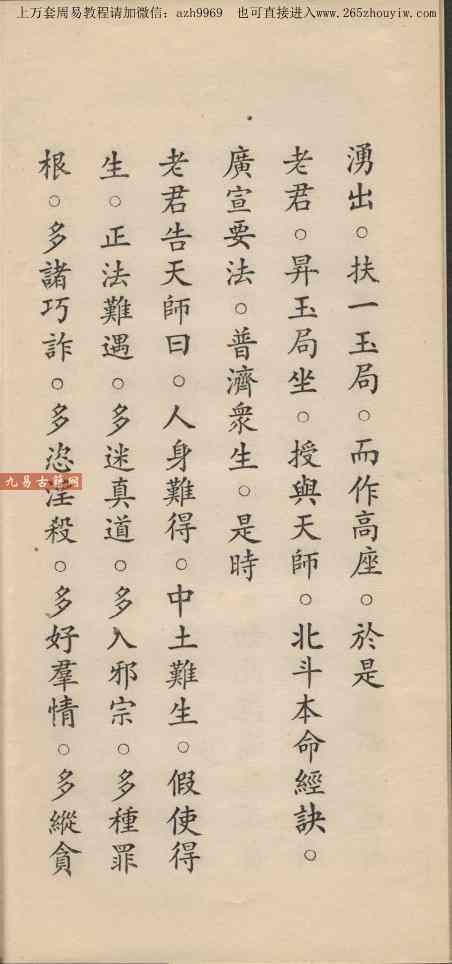 上万套周易教程请加微信：azh9969 也可直接进入www.265zhouyiw.com
湧出。扶一玉局。而作高座。於是
老君。昇玉局坐。授與天師。北斗本命經訣。
廣宣要法。普濟衆生。是時
老君告天師曰。人身難得。中土難生。假使得
生。正法難遇。多迷真道。多入邪宗。多種罪
根。多諸巧詐。多恣淫殺。多好羣情。多縱貪
九易古籍网